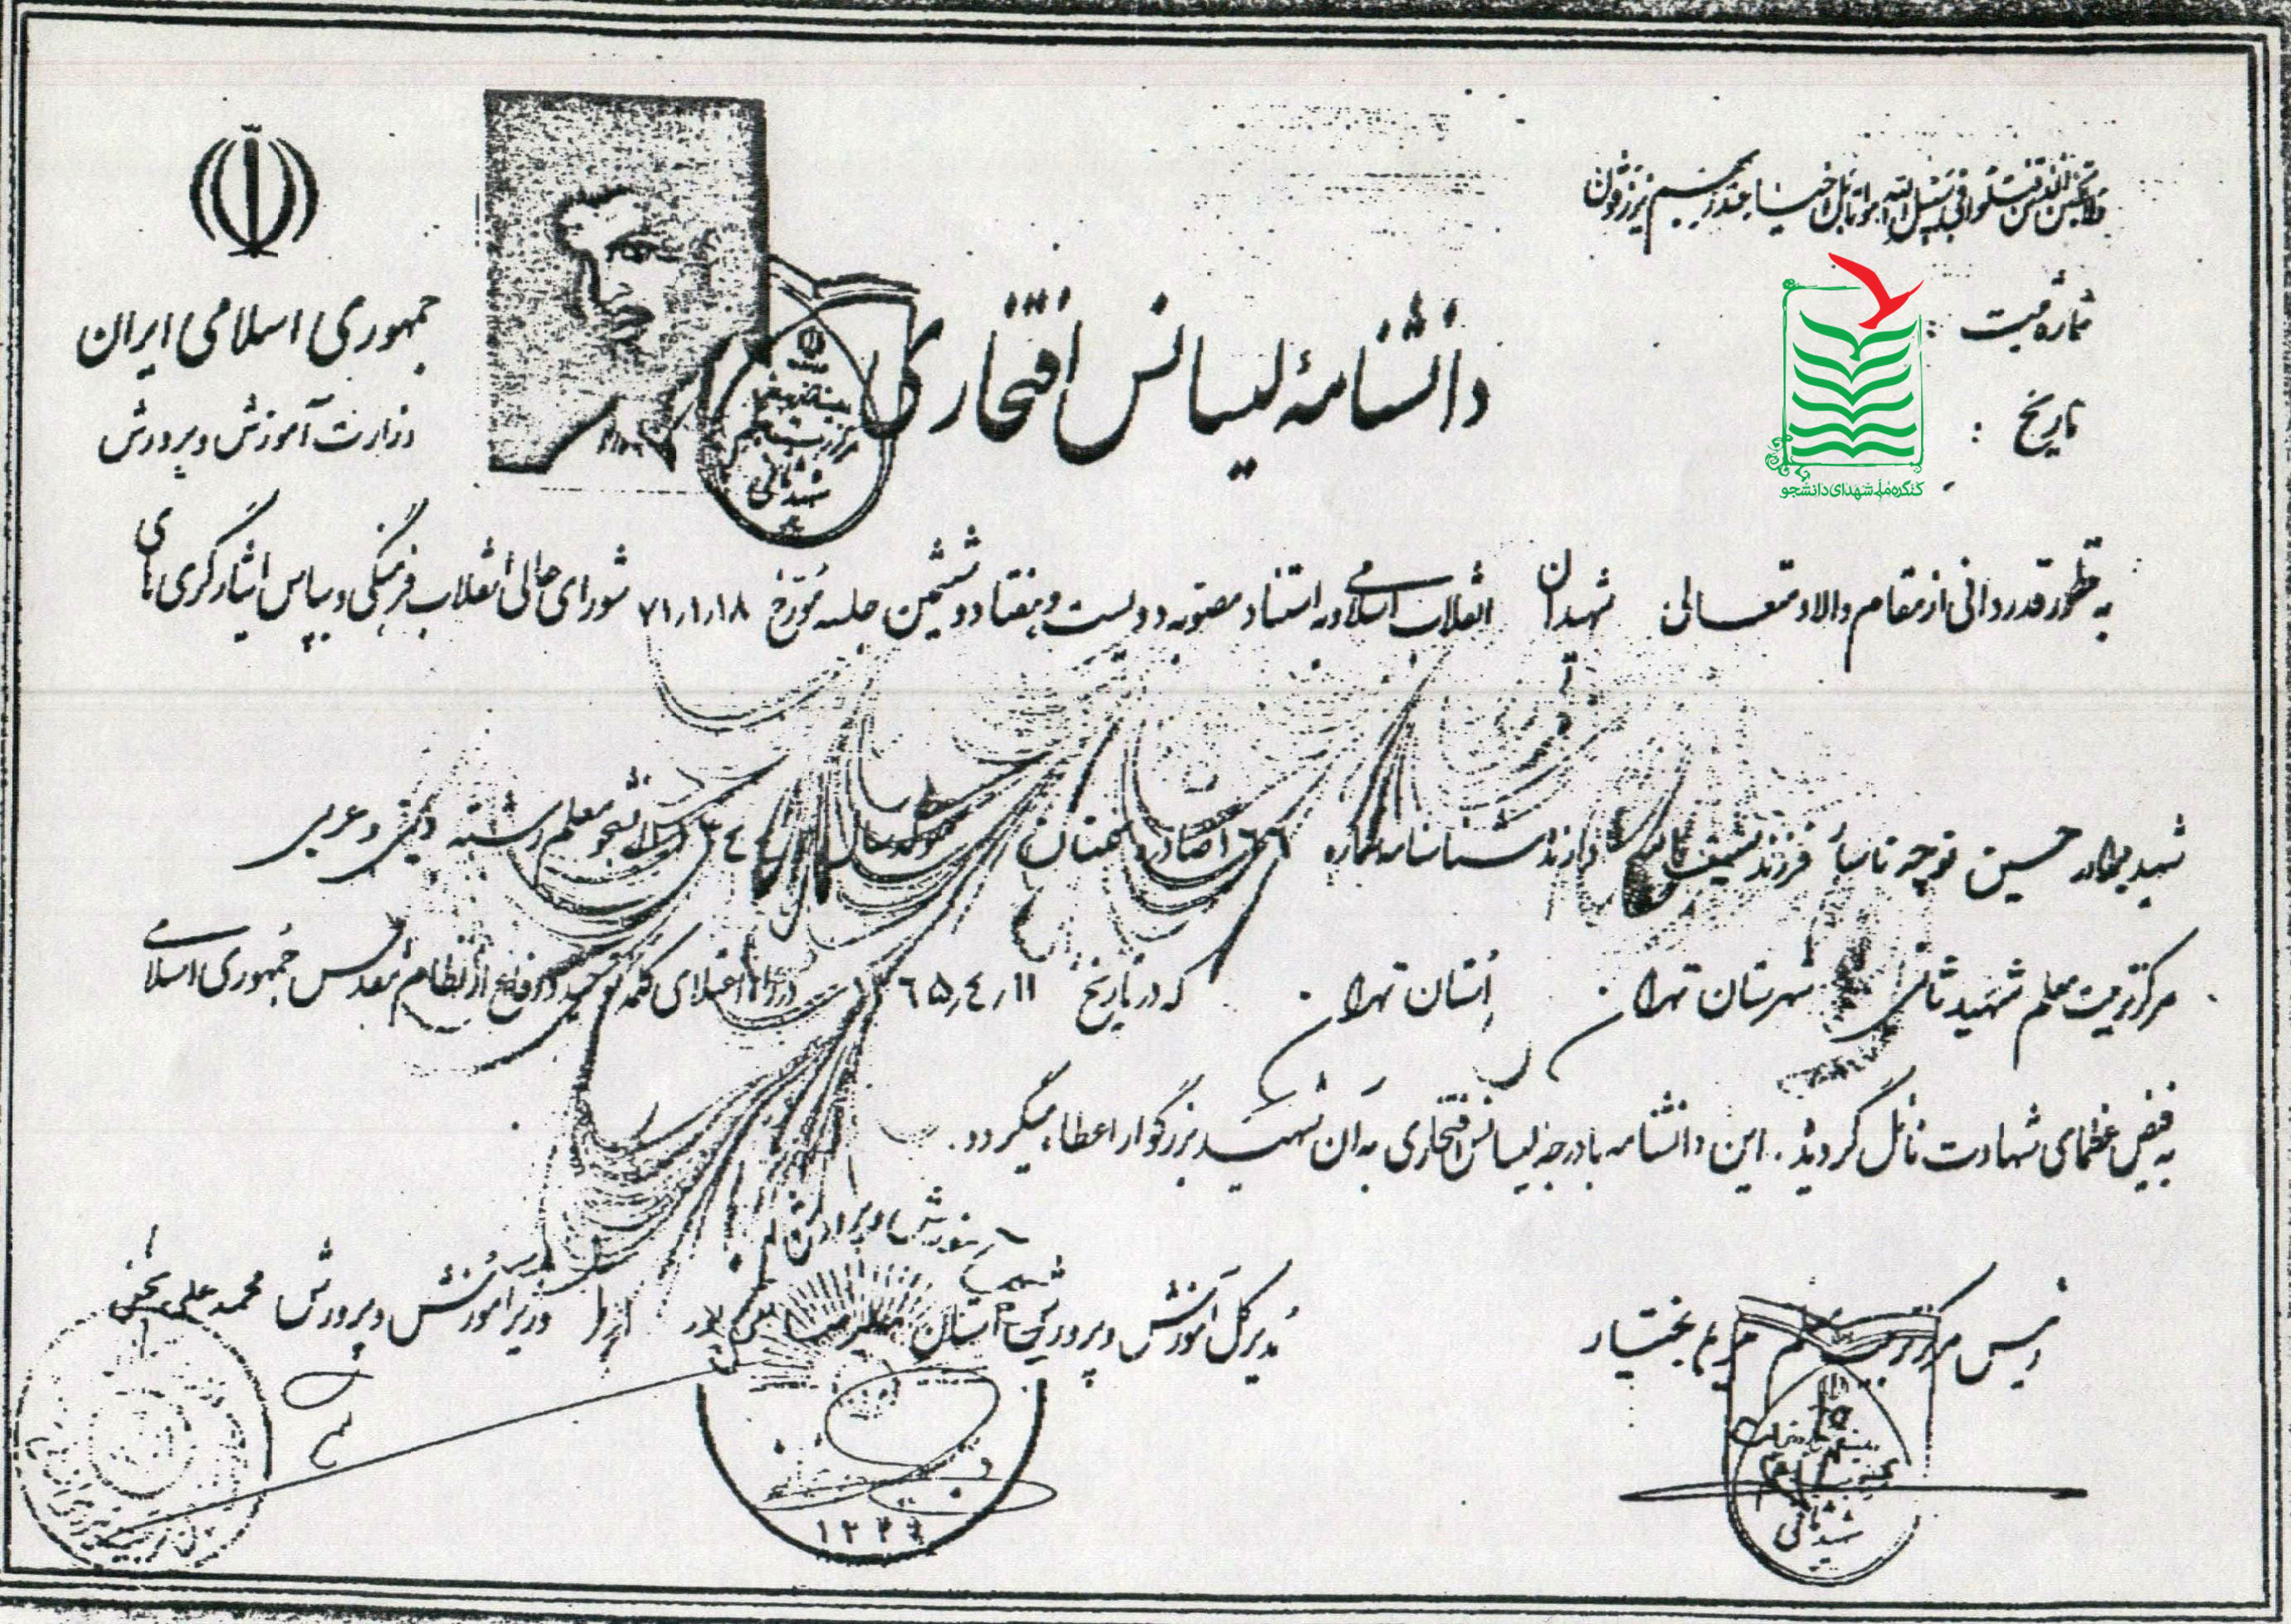 ولا تحسبن الذین قتلوا فی سبیل الله امواتا بل احیاء عند ربهم یرزقون
جمهوری اسلامی ایران
وزارت آموزش و پرورش
دانشنامهٔ لیسانس افتخاری
شماره ثبت :
تاریخ :
کنگره ملی شهدای دانشجو
به منظور قدردانی از مقام والا و متعالی شهیدان انقلاب اسلامی و به استناد مصوبه دویست و هفتاد و ششمین جلسه مورخ ۷۱٫۱٫۱۸ شورای عالی انقلاب فرهنگی و بپاس ایثارگری های
شهید برادر حسین فرزند دارنده شناسنامه شماره ۱۶۶ صادره سمنان متولد سال دانشجو معلم رشته دینی و عربی
مرکز تربیت معلم شهید ثانی شهرستان تهران استان تهران که در تاریخ ۶۵٫۴٫۱۱ در راه اعتلای کلمه توحید و دفاع از نظام مقدس جمهوری اسلامی
به فیض عظمای شهادت نائل گردید . این دانشنامه با درجه لیسانس افتخاری به آن شهید بزرگوار اعطاء میگردد .
رئیس مرکز تربیت معلم بختیار
مدیرکل آموزش و پرورش استان
وزیر آموزش و پرورش محمد علی نجفی
شهید ثانی